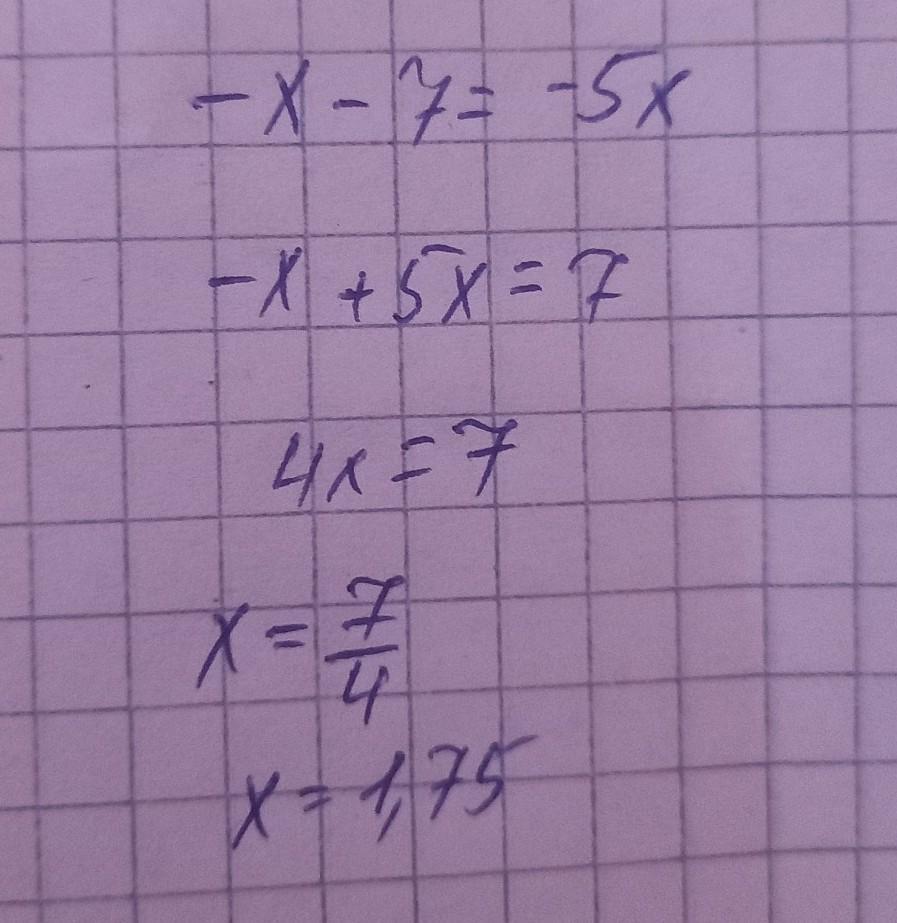 -x - 7 = -5x
-x + 5x = 7
4x = 7
x = 7/4
x = 1,75